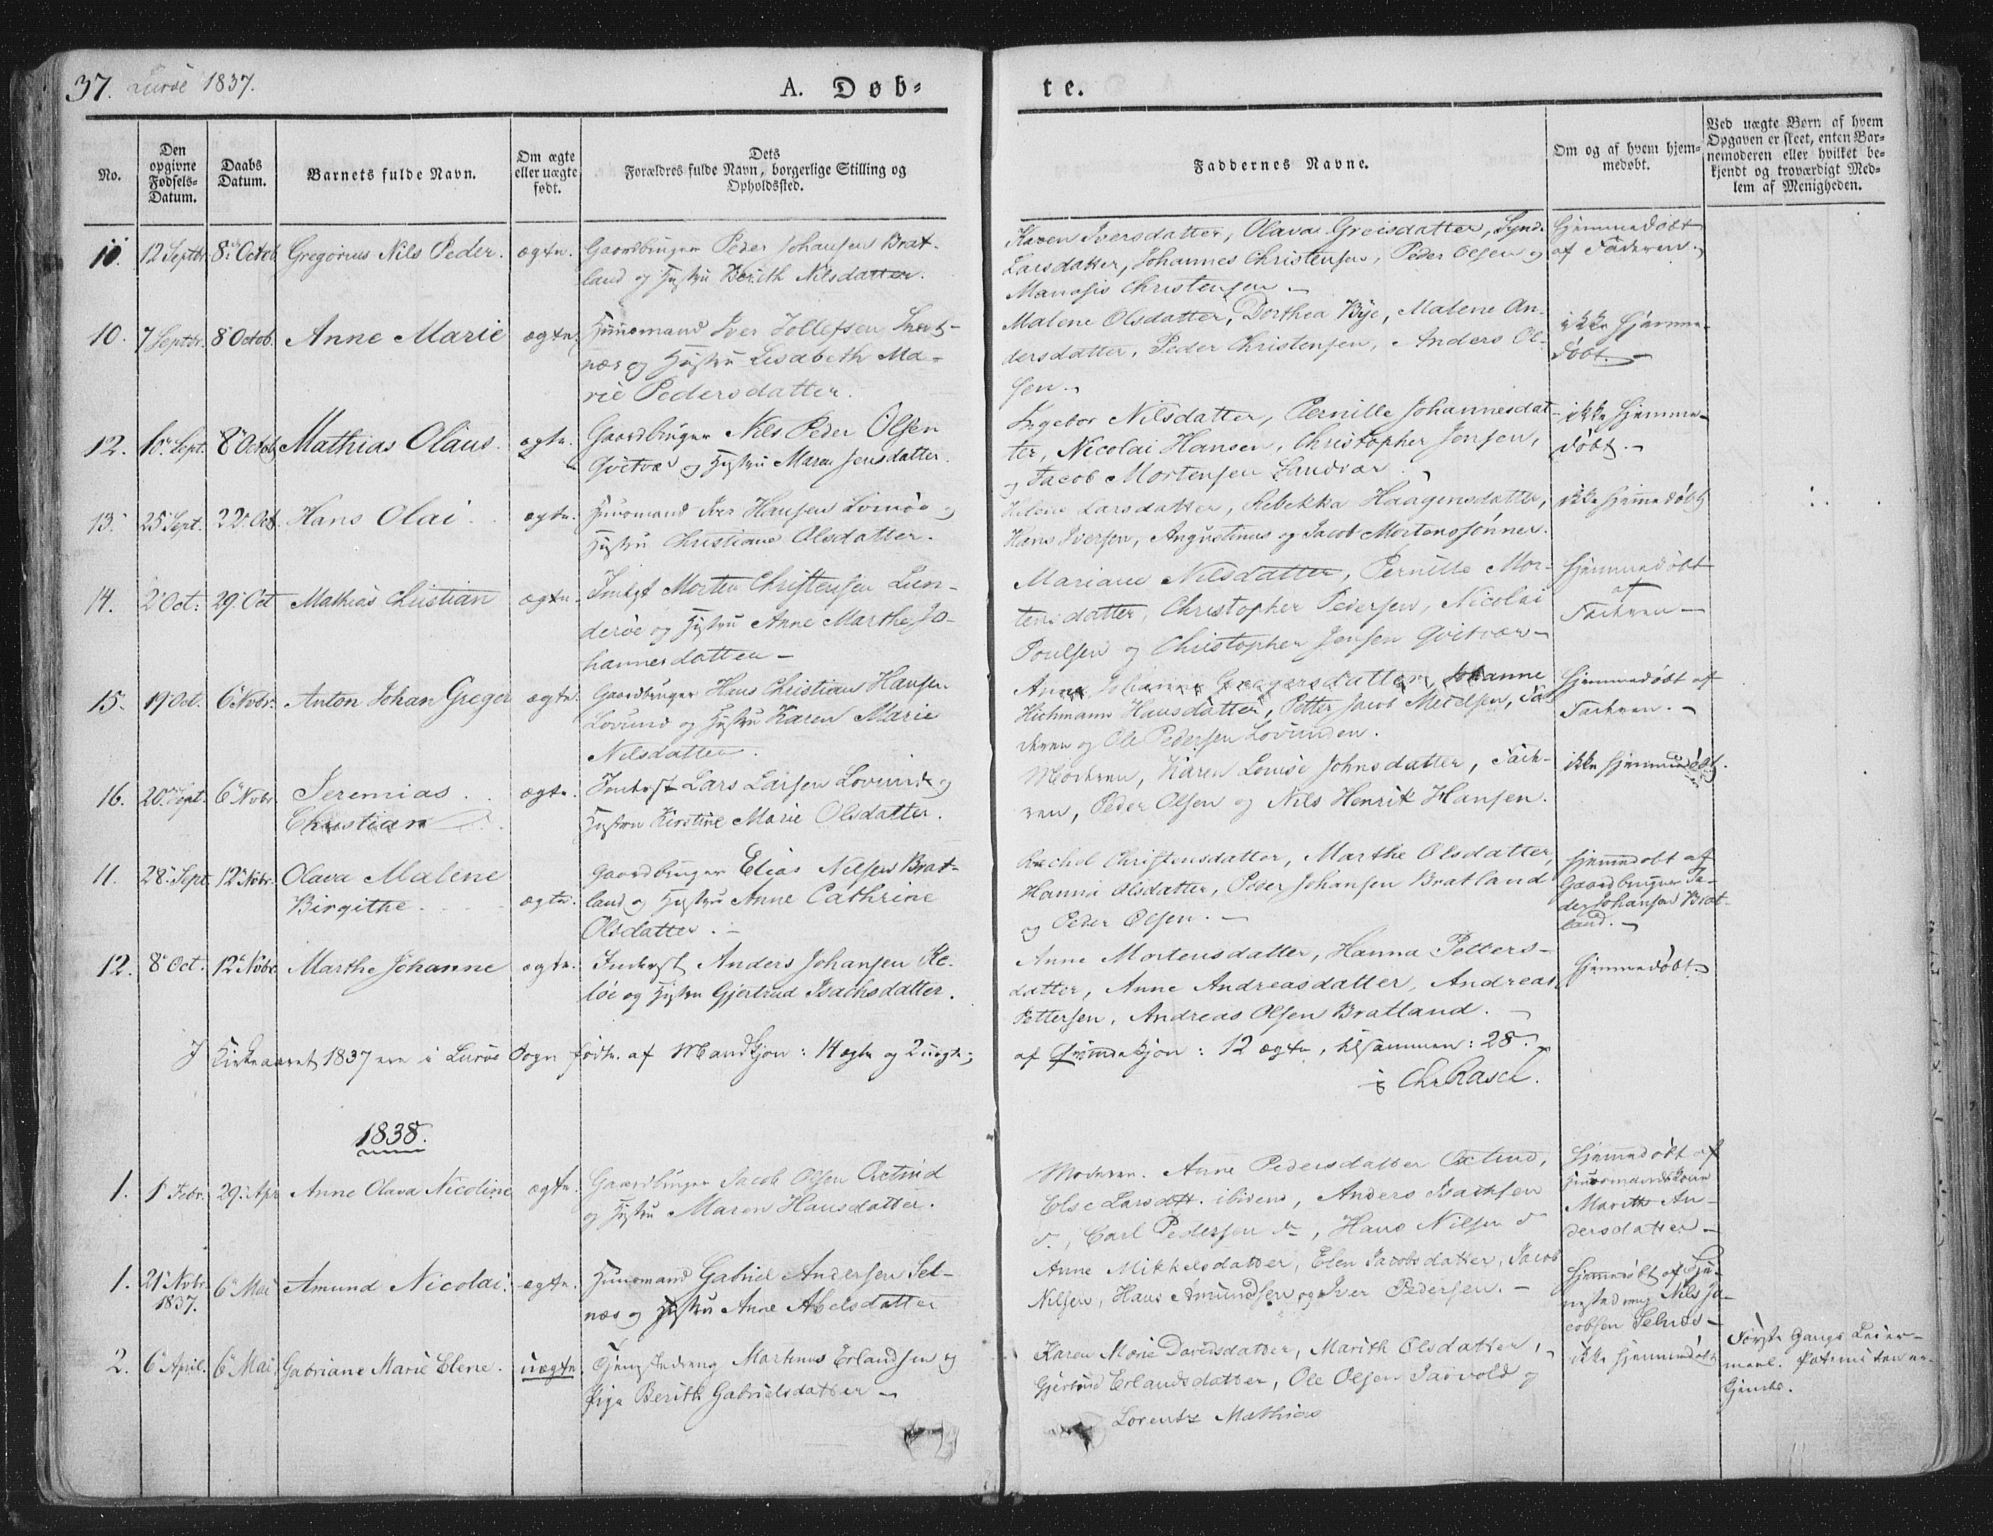 37. Lurøe 1837.
A. Døb-
te.
No.
Den opgivne Fødsels-Datum.
Daabs Datum.
Barnets fulde Navn.
Om ægte eller uægte født.
Dets Forældres fulde Navn, borgerlige Stilling og Opholdssted.
Faddernes Navne.
Om og af hvem hjemmedøbt.
Ved uægte Børn af hvem Opgaven er skeet, enten Barnemoderen eller hvilket bekjendt og troværdigt Medlem af Menigheden.
10. 12 Septbr. 8de Octob. Gregorius Nils Peder. ægte. Gaardbruger Peder Johansen Brat-
land og Hustru Berith Nilsdatter.
Karen Iversdatter, Olava Greisdatter,
Larsdatter, Johannes Christensen, Peder Olsen og
Manasis Christensen –
Hjemmedøbt
af Faderen.
10. 7 Septbr. 8 Octob. Anne Marie ægte. Huusmand Iver Tollefsen
næs og Hustru Lisabeth Ma-
rie Pedersdatter.
Malene Olsdatter, Dorthea Bye, Malene An-
dersdatter, Peder Christensen, Anders Ol-
sen.
ikke hjemme-
døbt. –
12. 10 Sept. 8 Octob. Mathias Olaus. ægte. Gaardbruger Nils Peder Olsen
Qvitvær og Hustru Maren Jensdatter.
Ingebor Nilsdatter, Pernille Johannesdat-
ter, Nicolai Hansen, Christopher Jensen,
og Jacob Mortensen
ikke hjemme-
døbt. –
13. 25 Sept. 22 Oct. Hans Olai. ægte. Huusmand Iver Hansen og
Hustru Christiane Olsdatter.
Helene Larsdatter, Rebekka Haagensdatter,
Hans Iversen, Augustinus og Jacob Mortenssønner.
ikke hjemmedøbt
14. 2 Oct. 29 Oct Mathias Christian ægte. Inderst Morten Christensen Lun-
derøe og Hustru Anne Marthe Jo-
hannesdatter –
Mariane Nilsdatter, Pernille Mor-
tensdatter, Christopher Pedersen, Nicolai
Poulsen og Christopher Jensen Qvitvær –
Hjemmedøbt
af
Faderen –
15. 19 Oct. 6 Nvbr. Anton Johan Greger ægte. Gaardbruger Hans Christian Hansen
Lovund og Hustru Karen Marie
Nilsdatter.
Anne Johanna Gregersdatter, Johanne
Hichmann Hansdatter, Petter Jacob Fa-
deren og Ole Pedersen Lovunden.
Hjemmedøbt af
Faderen. –
16. 20 Sept. 6 Nvbr. Jeremias
Christian ægte. Inderst Lars Larsen Lovund og
Hustru Kirstine Marie Olsdatter.
Moderen, Karen Louise Johnsdatter, Fade-
ren, Peder Olsen og Nils Henrik Hansen.
ikke hjemmedøbt.
11. 28 Sept 12 Nvbr. Olava Malene
Birgithe. ægte. Gaardbruger Elias Nilsen Brat-
land og Hustru Anne Cathrine
Olsdatter. –
Rachel Christensdatter, Marthe Olsdatter,
Hanna Olsdatter, Peder Johansen Bratland
og Peder Olsen. –
Hjemmedøbt af
Gaardbruger Pe-
der Johansen Brat-
land. –
12. 8 Oct. 12 Nvbr. Marthe Johanne ægte. Inderst Anders Johansen
og Hustru Gjertrud Isachsdatter.
Anne Mortensdatter, Hanna Petters-
datter, Anne Andreasdatter, Andreas
Pettersen, Andreas Olsen Bratland. –
Hjemmedøbt.
I Kirkeaaret 1837 ere i Lurøe Sogn fødte af Mandkjøn: 14 ægte og 2 uægte;
af Qvindekjøn: 12 ægte, tilsammen: 28.
Chr Rasch.
1838.
1. 1 Febr. 29 Apr Anne Olava Nicoline ægte. Gaardbruger Jacob Olsen
og Hustru Maren Hansdatter.
Moderen. Anne Pedersdatter
Else Larsdtt. ibidem, Anders Isachsen
d., Carl Pedersen d., Hans Nilsen d
Hjemmedøbt af
Huusmandskone
Marith An-
dersdatter –
1. 21 Nvbr.
1837. 6 Mai Amund Nicolai. ægte. Huusmand Gabriel Andersen Sel-
næs og Hustru Anne Abelsdatter
Anne Mikkelsdatter, Elen Jacobsdatter, Jacob
Nilsen, Hans Amundsen og Iver Pedersen. –
Hjemmedøbt af Tje-
nestedreng Nils Ja-
cobsen Selnæs –
2. 6 April. 6 Mai Gabriane Marie Elene. uægte. Tjenestedreng Martinus Erlandsen og
Pige Berith Gabrielsdatter –
Karen Marie Davidsdatter, Marith Olsdatter,
Gjertrud Erlandsdatter, Ole Olsen og
Lorentz Mathias
ikke hjemmedøbt
Første Gangs Leier-
maal.